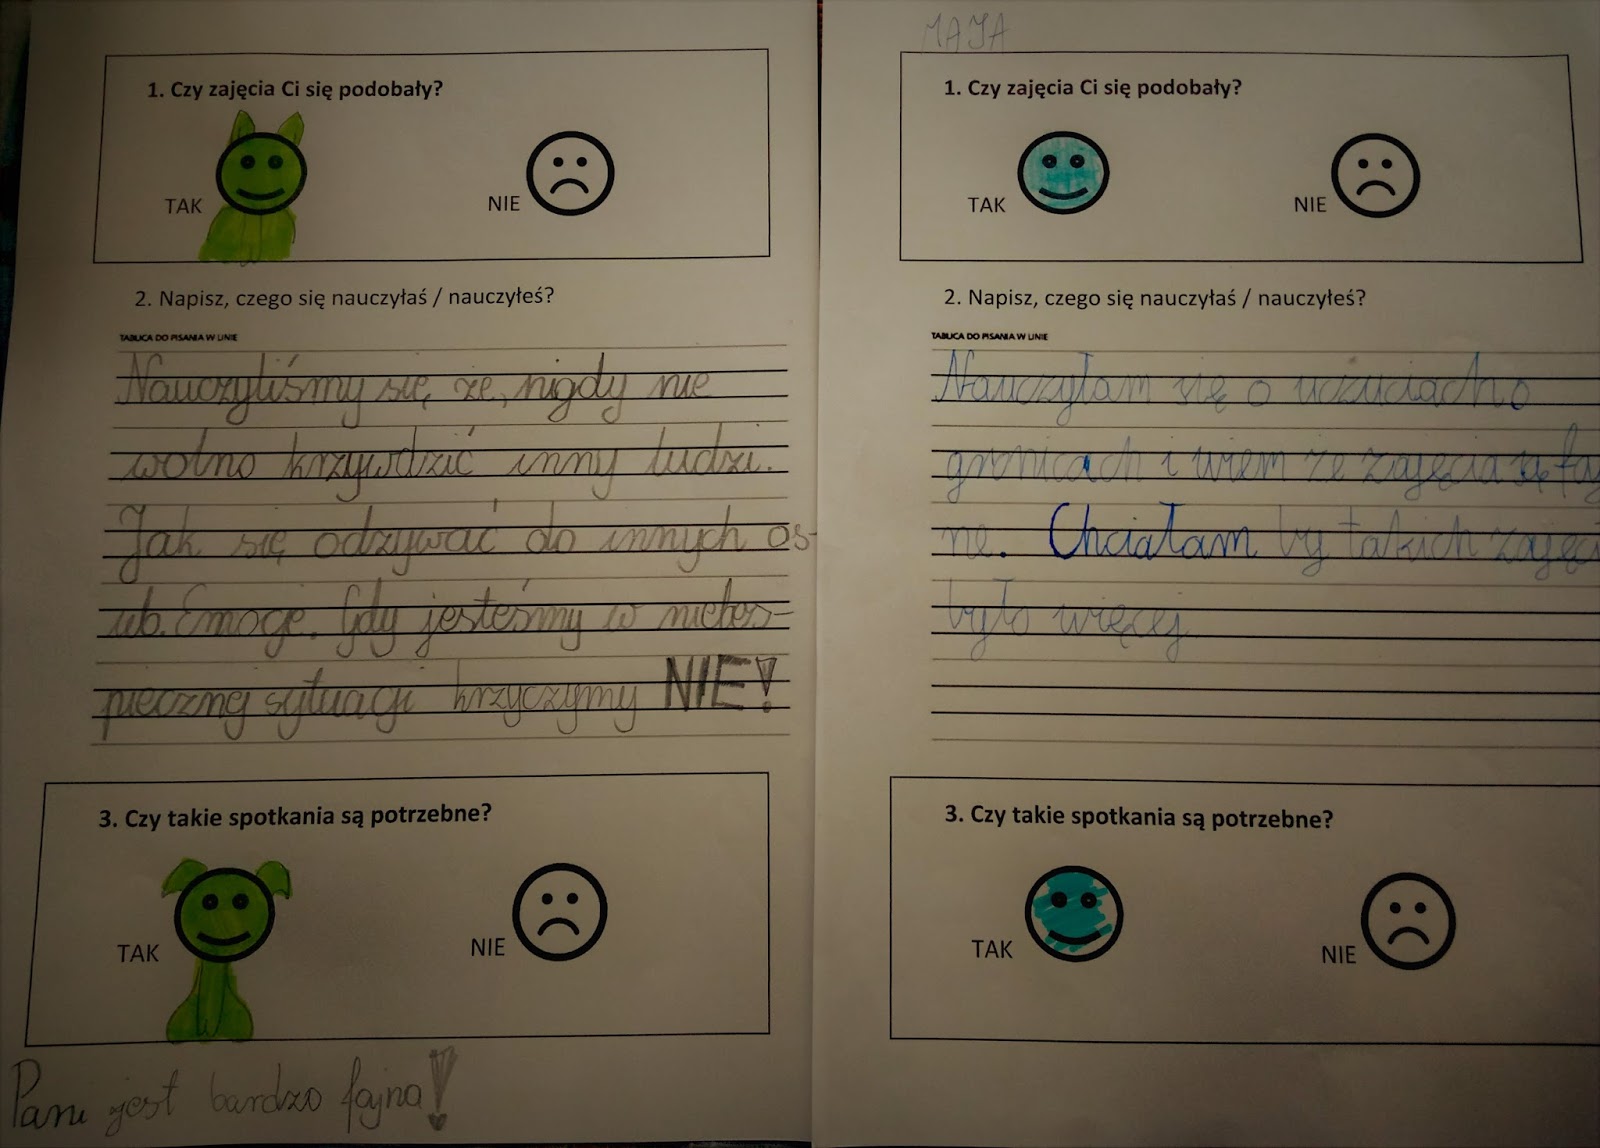 1. Czy zajęcia Ci się podobały?
TAK
NIE
2. Napisz, czego się nauczyłaś / nauczyłeś?
TABLICA DO PISANIA W LINIE
Nauczyliśmy się, że, nigdy nie
wolno krzywdzić inny ludzi.
Jak się odzywać do innych os-
ub. Emocje. Gdy jesteśmy w niebes-
piecznej sytuacji krzyczymy NIE!
3. Czy takie spotkania są potrzebne?
TAK
NIE
Pani jest bardzo fajna!
MAJA
1. Czy zajęcia Ci się podobały?
TAK
NIE
2. Napisz, czego się nauczyłaś / nauczyłeś?
TABLICA DO PISANIA W LINIE
Nauczyłam się o uczuciach o
granicach i wiem że zajęcia są faj
ne. Chciałam by takich zajęć
było więcej
3. Czy takie spotkania są potrzebne?
TAK
NIE